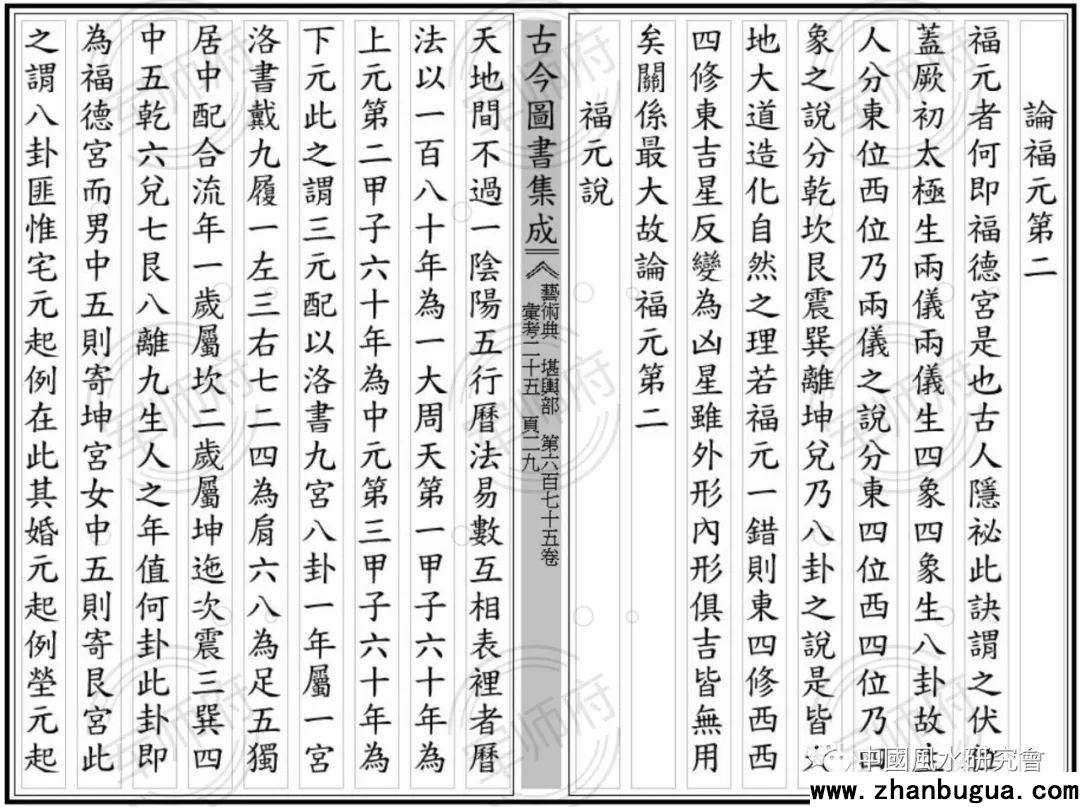 論福元第二
福元者何即福德宮是也古人隱祕此訣謂之伏
蓋厥初太極生兩儀兩儀生四象四象生八卦故生
人分東位西位乃兩儀之說分東四位西四位乃四
象之說分乾坎艮震巽離坤兌乃八卦之說是皆
地大道造化自然之理若福元一錯則東四修西西
四修東吉星反變為凶星雖外形內形俱吉皆無用
矣關係最大故論福元第二
福元說
古今圖書集成
藝術典 堪輿部 第六百七十五卷
彙考二十五 頁二九
天地間不過一陰陽五行曆法易數互相表裡者曆
法以一百八十年為一大周天第一甲子六十年為
上元第二甲子六十年為中元第三甲子六十年為
下元此之謂三元配以洛書九宮八卦一年屬一宮
洛書戴九履一左三右七二四為肩六八為足五獨
居中配合流年一歲屬坎二歲屬坤迤次震三巽四
中五乾六兌七艮八離九生人之年值何卦此卦即
為福德宮而男中五則寄坤宮女中五則寄艮宮此
之謂八卦匪惟宅元起例在此其婚元起例塋元起
中國風水研究會
www.zhanbugua.com